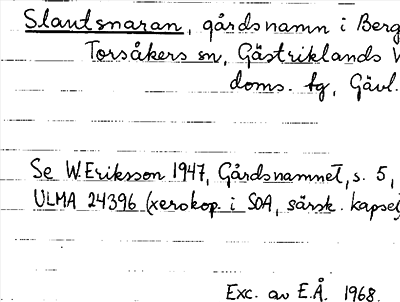 Slautsnaran, gårdsnamn i Berg
Torsåkers sn, Gästriklands V
doms. tg, Gävl.
Se W. Eriksson 1947, Gårdsnamnet, s. 5,
ULMA 24396 (xerokop. i SOA, särsk. kapsel)
Exc. av E.Å. 1968.